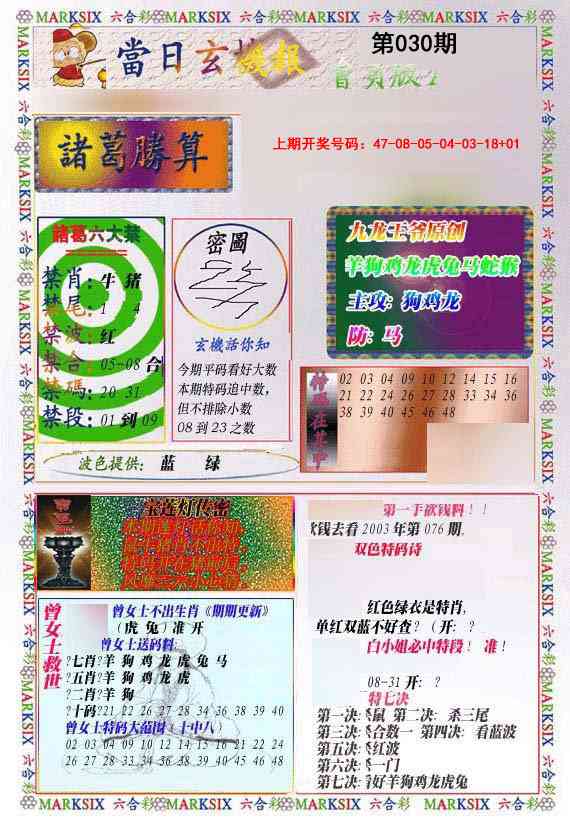 MARKSIX 六合彩 MARKSIX 六合彩 MARKSIX 六合彩 MARKSIX 六合彩
當日玄機報
第030期
上期开奖号码：47-08-05-04-03-18+01
諸葛勝算
諸葛六大禁
禁肖：牛 猪
禁尾：1 4
禁波：红
禁合：05-08 合
禁碼：20 31
禁段：01 到 09
密圖
玄機話你知
今期平码看好大数
本期特码追中数，
但不排除小数
08 到 23 之数
九龙王爷原创
羊狗鸡龙虎兔马蛇猴
主攻：狗鸡龙
防：马
特码在其中
02 03 04 09 10 12 14 15 16
21 22 24 26 27 28 33 34 36
38 39 40 45 46 48
波色提供： 蓝 绿
宝莲灯传密
曾女士救世
曾女士不出生肖《期期更新》
（虎 兔）准 开
曾女士送码料
?七肖?羊 狗 鸡 龙 虎 兔 马
?五肖?羊 狗 鸡 龙 虎
?二肖?羊 狗
?十码?21 22 26 27 28 34 36 38 39 40
曾女士特码大范围（十中八）
02 03 04 09 10 12 14 15 16 21 22 24
26 27 28 33 34 36 38 39 40 45 46 48
第一手砍钱料！！
砍钱去看 2003 年第 076 期，
双色特码诗
红色绿衣是特肖，
单红双蓝不好查？（开：？
白小姐必中特段！ 准！
08-31 开：？
特七决
第一决：杀鼠 第二决：杀三尾
第三决：杀合数一 第四决：看蓝波
第五决：杀红波
第六决：杀一门
第七决：看好羊狗鸡龙虎兔
MARKSIX 六合彩 MARKSIX 六合彩 MARKSIX 六合彩 MARKSIX 六合彩